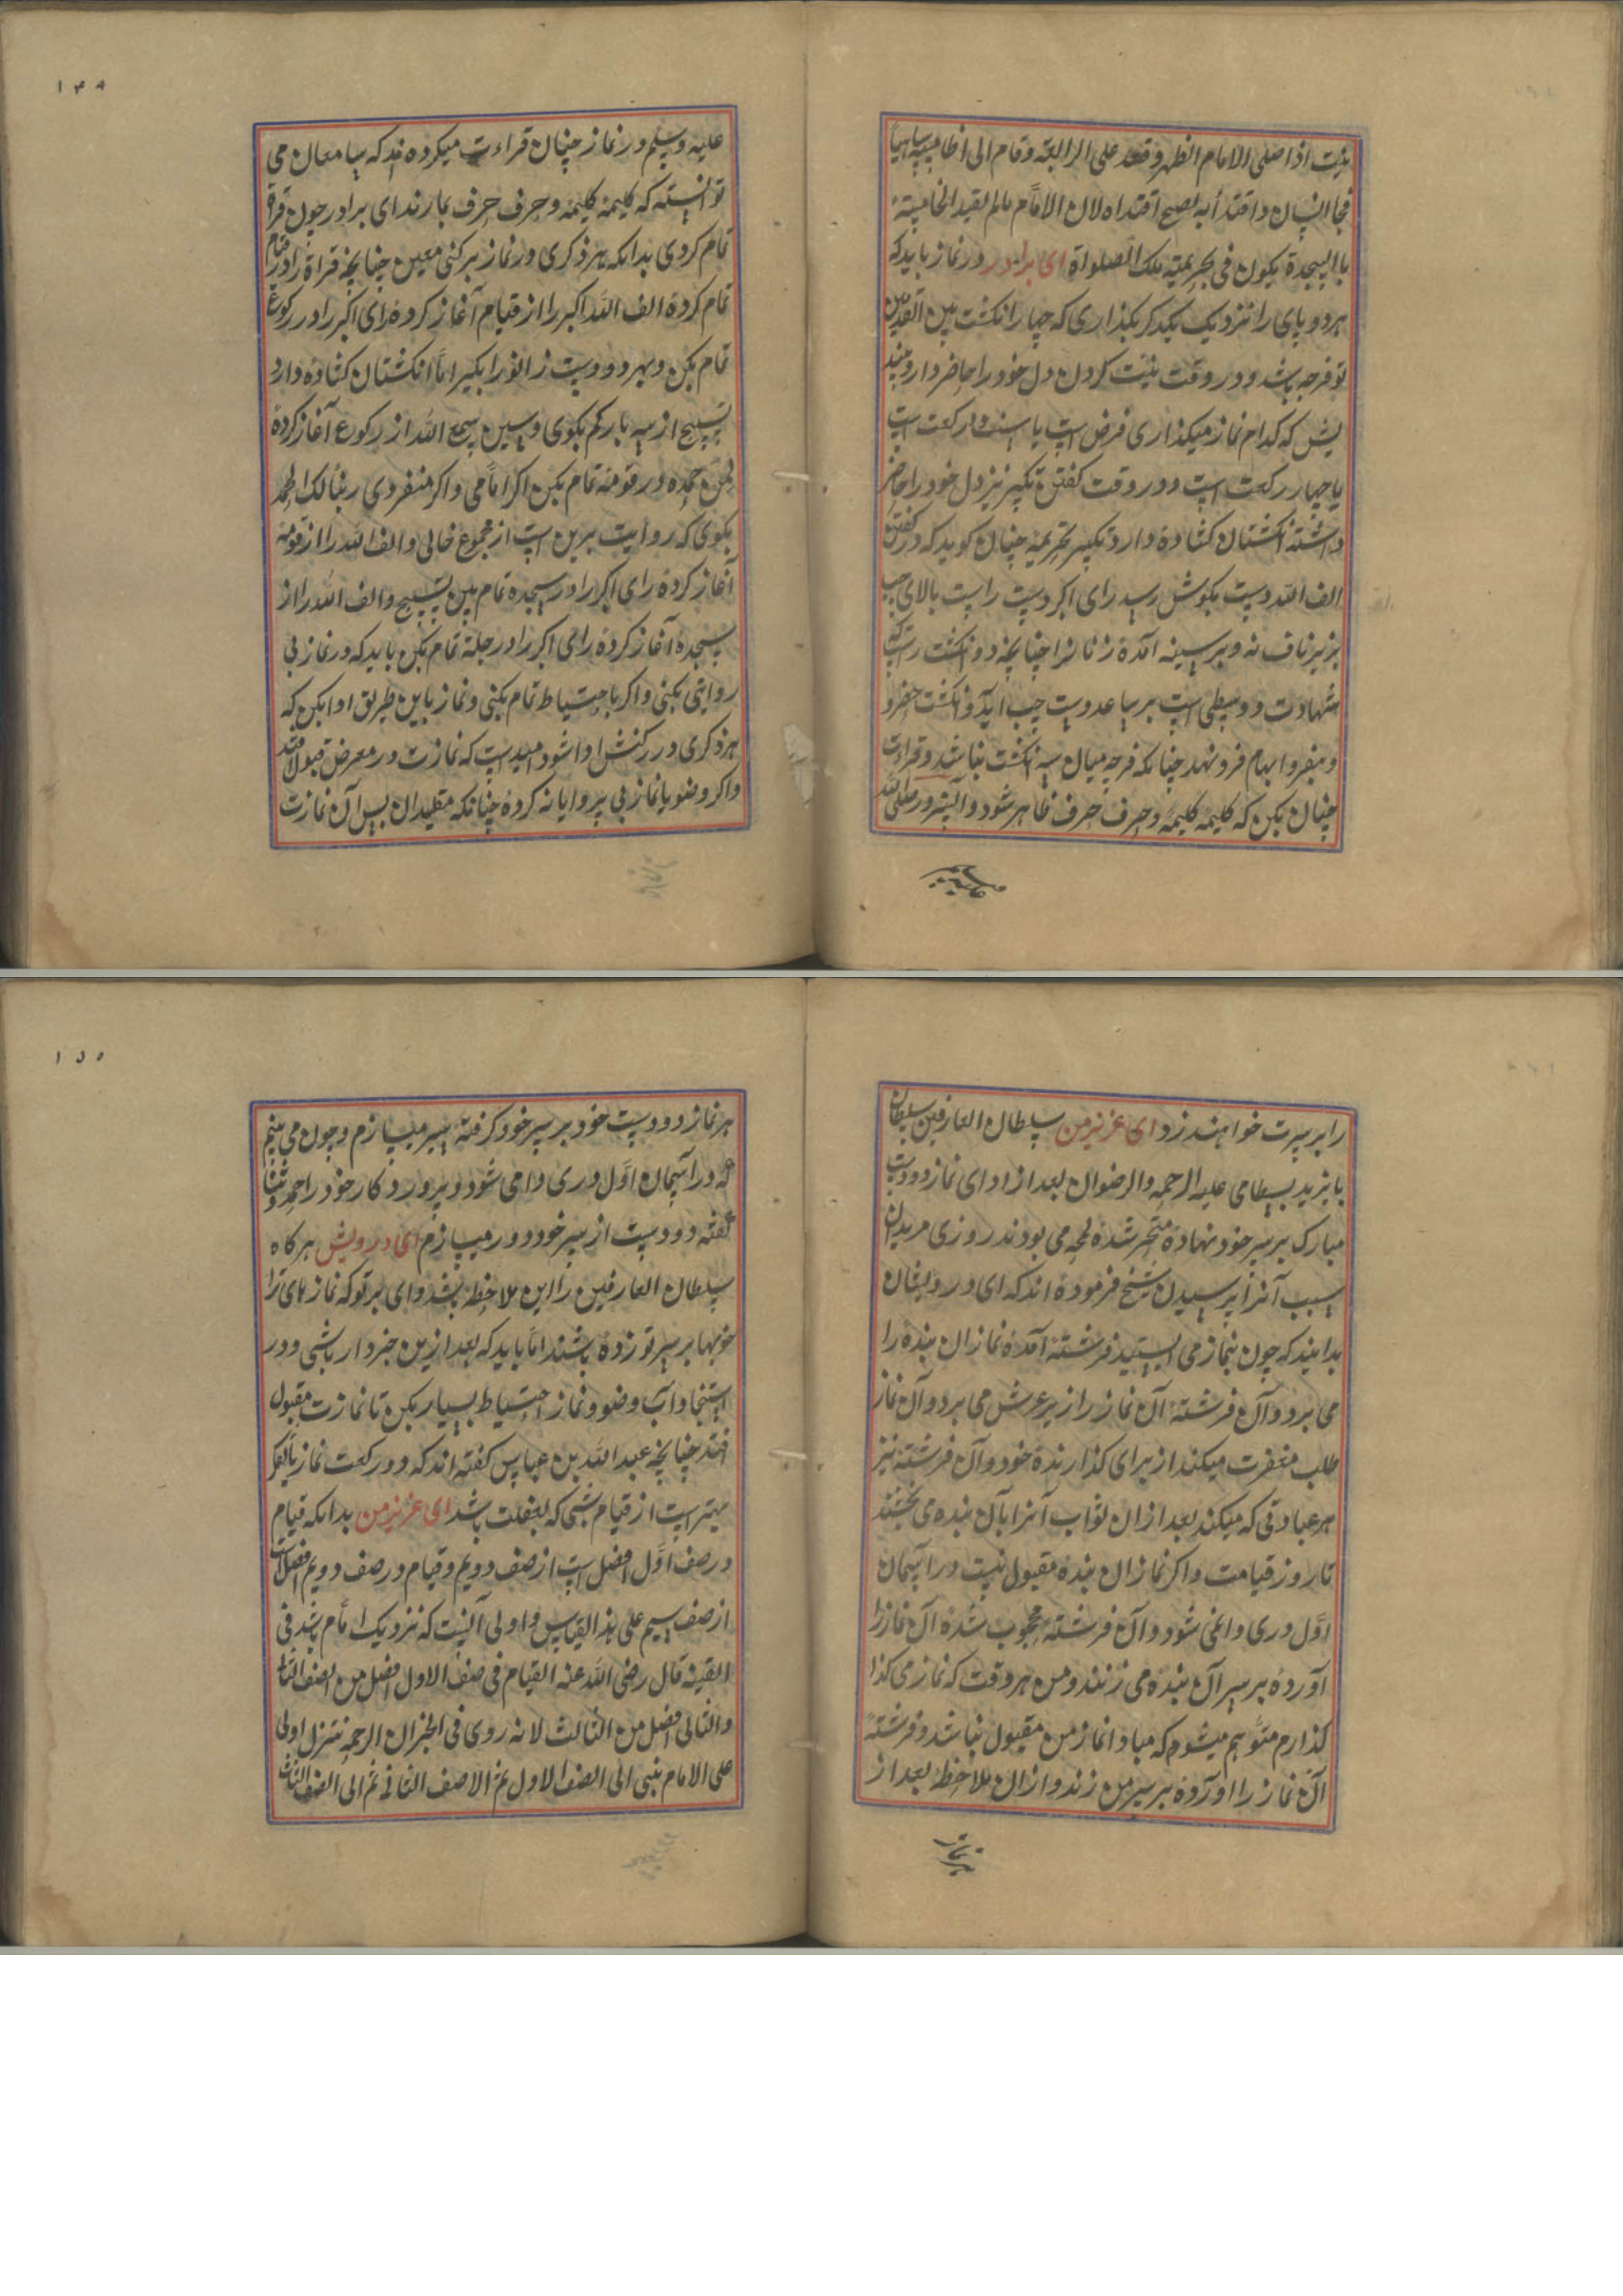 نیت اذا صلی الامام الظهر و قعد علی الرابعة و قام الی الخامسة ساهیا
فجا انسان و اقتدا به یصح اقتداه لان الامام مالم یقید الخامسة
با السجدة یکون فی تحریمته تلک الصلواة ای برادر در نماز باید که
هر دو پای را نزدیک یکدکر بکذاری که چهار انکشت بین القدمین
تو فرجه باشد و در وقت نیت کردن دل خود را حاضر دار و
که کدام نماز میکذاری فرض است یا سنت دو رکعت است
یا چهار رکعت است و در وقت کفتن تکبیر نیز دل خود را حاضر
داشته انکشتان کشاده دارد تکبیر تحریمه چنان کوید که در کفتن
الف الله دست بکوش رسد رای اکبر دست راست بالای چپ
بزیر ناف نه و بر سینه آمده زنانرا چنانچه دو انکشت راست که
شهادت و وسطی است بر ساعد دست چپ آید و انکشت خنصر و
و بنصر و ابهام فرو نهد چنانکه فرجه میان سه انکشت نباشد و قراءت
چنان بکن که کلیمه کلیمه و حرف حرف ظاهر شود و البته رسول صلی الله
علیه وسلم
۱۴۸
علیه وسلم در نماز چنان قراءت میکرده اند که سامعان می
توانسته که کلیمه کلیمه و حرف حرف بشمارند ای برادر چون قراة
تمام کردی بدانکه هر ذکری در نماز برکنی معین چنانچه قراة را در قیام
تمام کرده الف الله اکبر را از قیام آغاز کرده رای اکبر را در رکوع
تمام بکن و بهر دو دست زانو را بکیر اما انکشتان کشاده دارد
تسبیح از سه بار کم نکوی و سین سمع الله از رکوع آغاز کرده
لمن حمده در قومه تمام بکن اکر امامی و اکر منفردی ربنا لک الحمد
بکوی که روایت برین است از مجموع خالی و الف الله را از قومه
آغاز کرده رای اکبر را در سجده تمام بین تسبیح و الف الله را از
سجده آغاز کرده رای اکبر را در جلسه تمام بکن باید که در نماز بی
روایتی نکنی و اکر با احتیاط تمام بکنی و نماز باین طریق ادا بکن که
هر ذکری در رکنش ادا شود امید است که نمازت در معرض قبول افتد
و اکر وضو یا نماز بی پروایانه کرده چنانکه مقلیدان بس آن نمازت
را بر سرت خواهند زد ای عزیز من سلطان العارفین سلطان
بایزید بسطامی علیه الرحمه والرضوان بعد از ادای نماز دو دست
مبارک بر سر خود نهاده متحیر شده لمحه می بودند روزی مریدان
سبب آنرا پرسیدن شیخ فرموده اند که ای درویشان
بدانید که چون بنماز می ایستید فرشته آمده نماز ان بنده را
می برد و آن فرشته آن نماز را زیر عرش می برد و آن نماز
طلب مغفرت میکند از برای کذارنده خود و آن فرشته نیز
هر عبادتی که میکند بعد از ان ثواب آنرا بآن بنده می بخشند
تا روز قیامت و اکر نماز ان بنده مقبول نیست در آسمان
اول دری وا نمی شود و آن فرشته محجوب شده آن نماز را
آورده بر سر آن بنده می زنند و من هر وقت که نماز می کذا
کذارم متوهم میشوم که مبادا نماز من مقبول نباشد و فرشته
آن نماز را اورده بر سر من زند و ازان ملاحظه بعد از
هر نماز
۱۵۰
هر نماز دو دست خود بر سر خود کرفته سپر میسازم و چون می بینم
که در آسمان اول دری وا می شود و پروردکار خود را حمد و ثنا
کفته دو دست از سر خود دور میسازم ای درویش هر کاه
سلطان العارفین را این ملاحظه باشد وای بر تو که نماز های ترا
خوبها بر سر تو زده باشند اما باید که بعد ازین خبردار باشی و در
استنجا و آب وضو و نماز احتیاط بسیار بکن تا نمازت مقبول
افتد چنانچه عبد الله بن عباس کفته اند که دو رکعت نماز با تفکر
بهتر است از قیام شبی که بغفلت باشد ای عزیز من بدانکه قیام
در صف اول افضل است از صف دویم و قیام در صف دویم افضل است
از صف سیم علی هذا القیاس و اولی آنیست که نزدیک امام باشد فی
القنیه قال رضی الله عنه القیام فی صف الاول افضل من الصف الثا
والثانی افضل من الثالث لانه روی فی الخبر ان الرحمة تنزل اولی
علی الامام ثم الی الصف الاول ثم الا صف الثانی ثم الی الصف الثالث